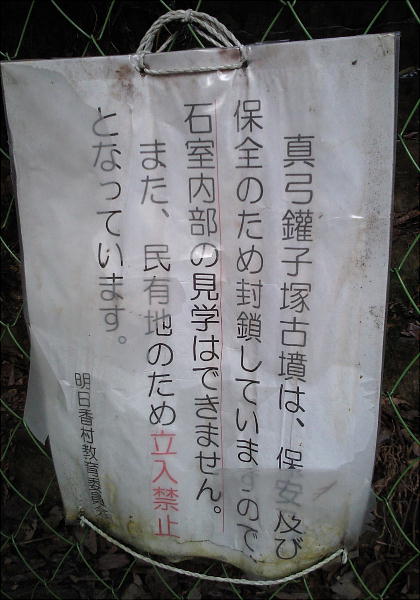 真弓鑵子塚古墳は、保安及び
保全のため封鎖していますので、
石室内部の見学はできません。
また、民有地のため立入禁止
となっています。
明日香村教育委員会